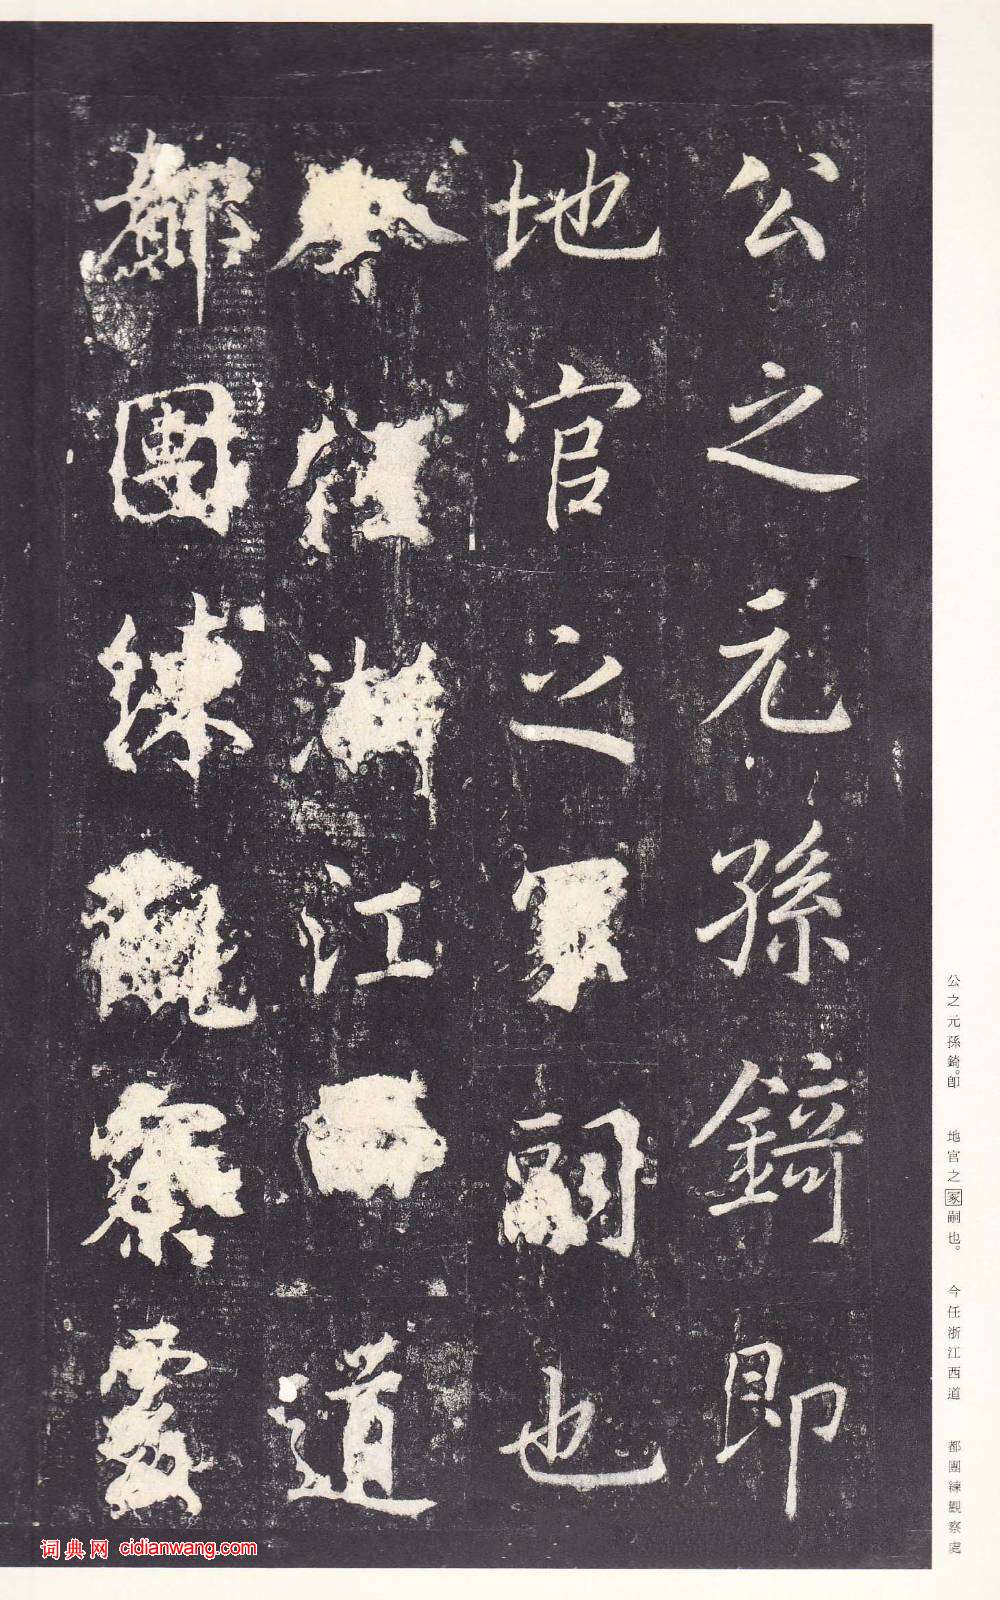 公之元孫錡即
地官之冢嗣也
今任浙江西道
都團練觀察處
公之元孫錡。即　地官之冢嗣也。　今任浙江西道　都團練觀察處
词典网 cidianwang.com